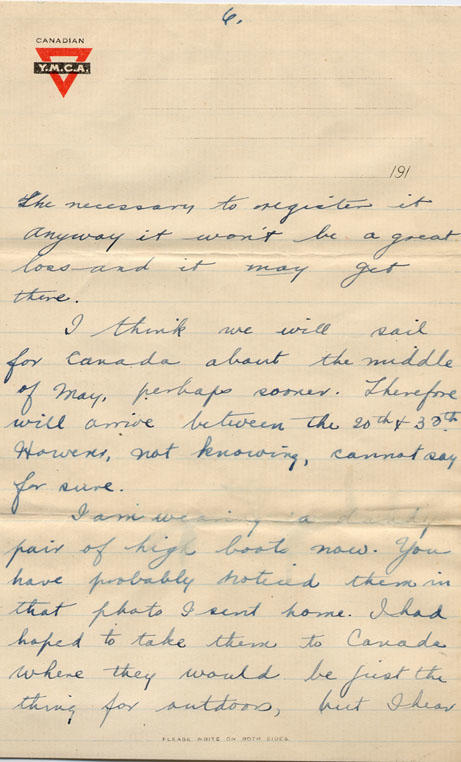 6.
CANADIAN
Y.M.C.A.
191
the necessary to register it
anyway it won't be a great
loss and it may get
there.
I think we will sail
for Canada about the middle
of May, perhaps sooner. Therefore
will arrive between the 20th & 30th.
However, not knowing, cannot say
for sure.
I am wearing a dandy
pair of high boots now. You
have probably noticed them in
that photo I sent home. I had
hoped to take them to Canada
where they would be just the
thing for outdoors, but I hear
PLEASE WRITE ON BOTH SIDES